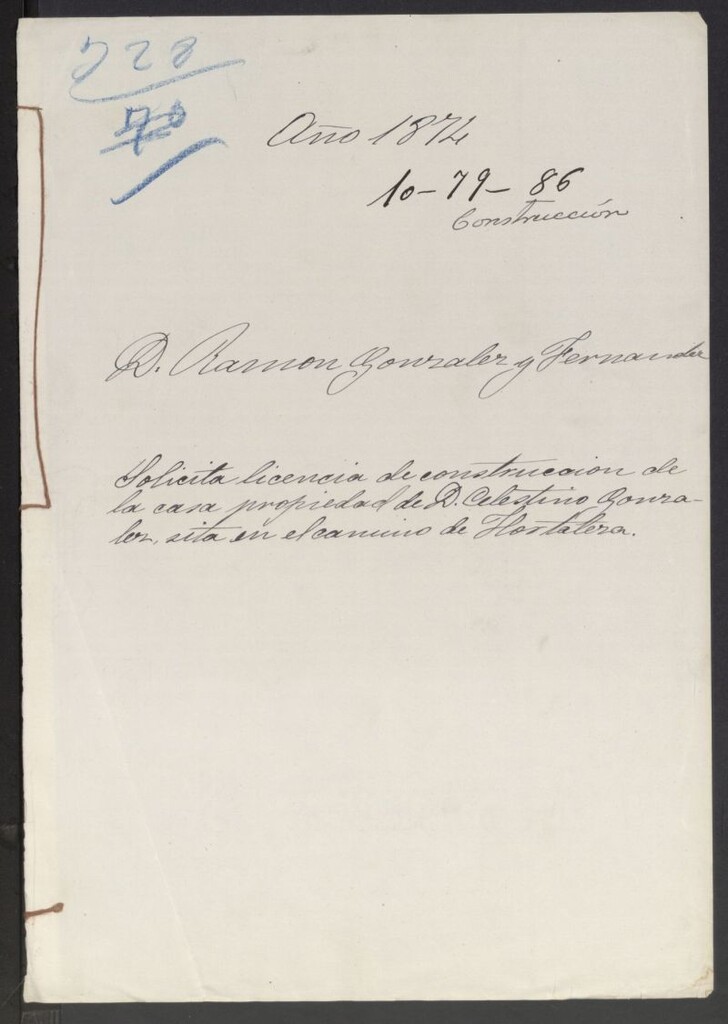 728
70
Año 1874
10-79-86
Construcción
D. Ramon Gonzalez y Fernandez
Solicita licencia de construccion de
la casa propiedad de D. Celestino Gonza-
lez, sita en el camino de Hortaleza.